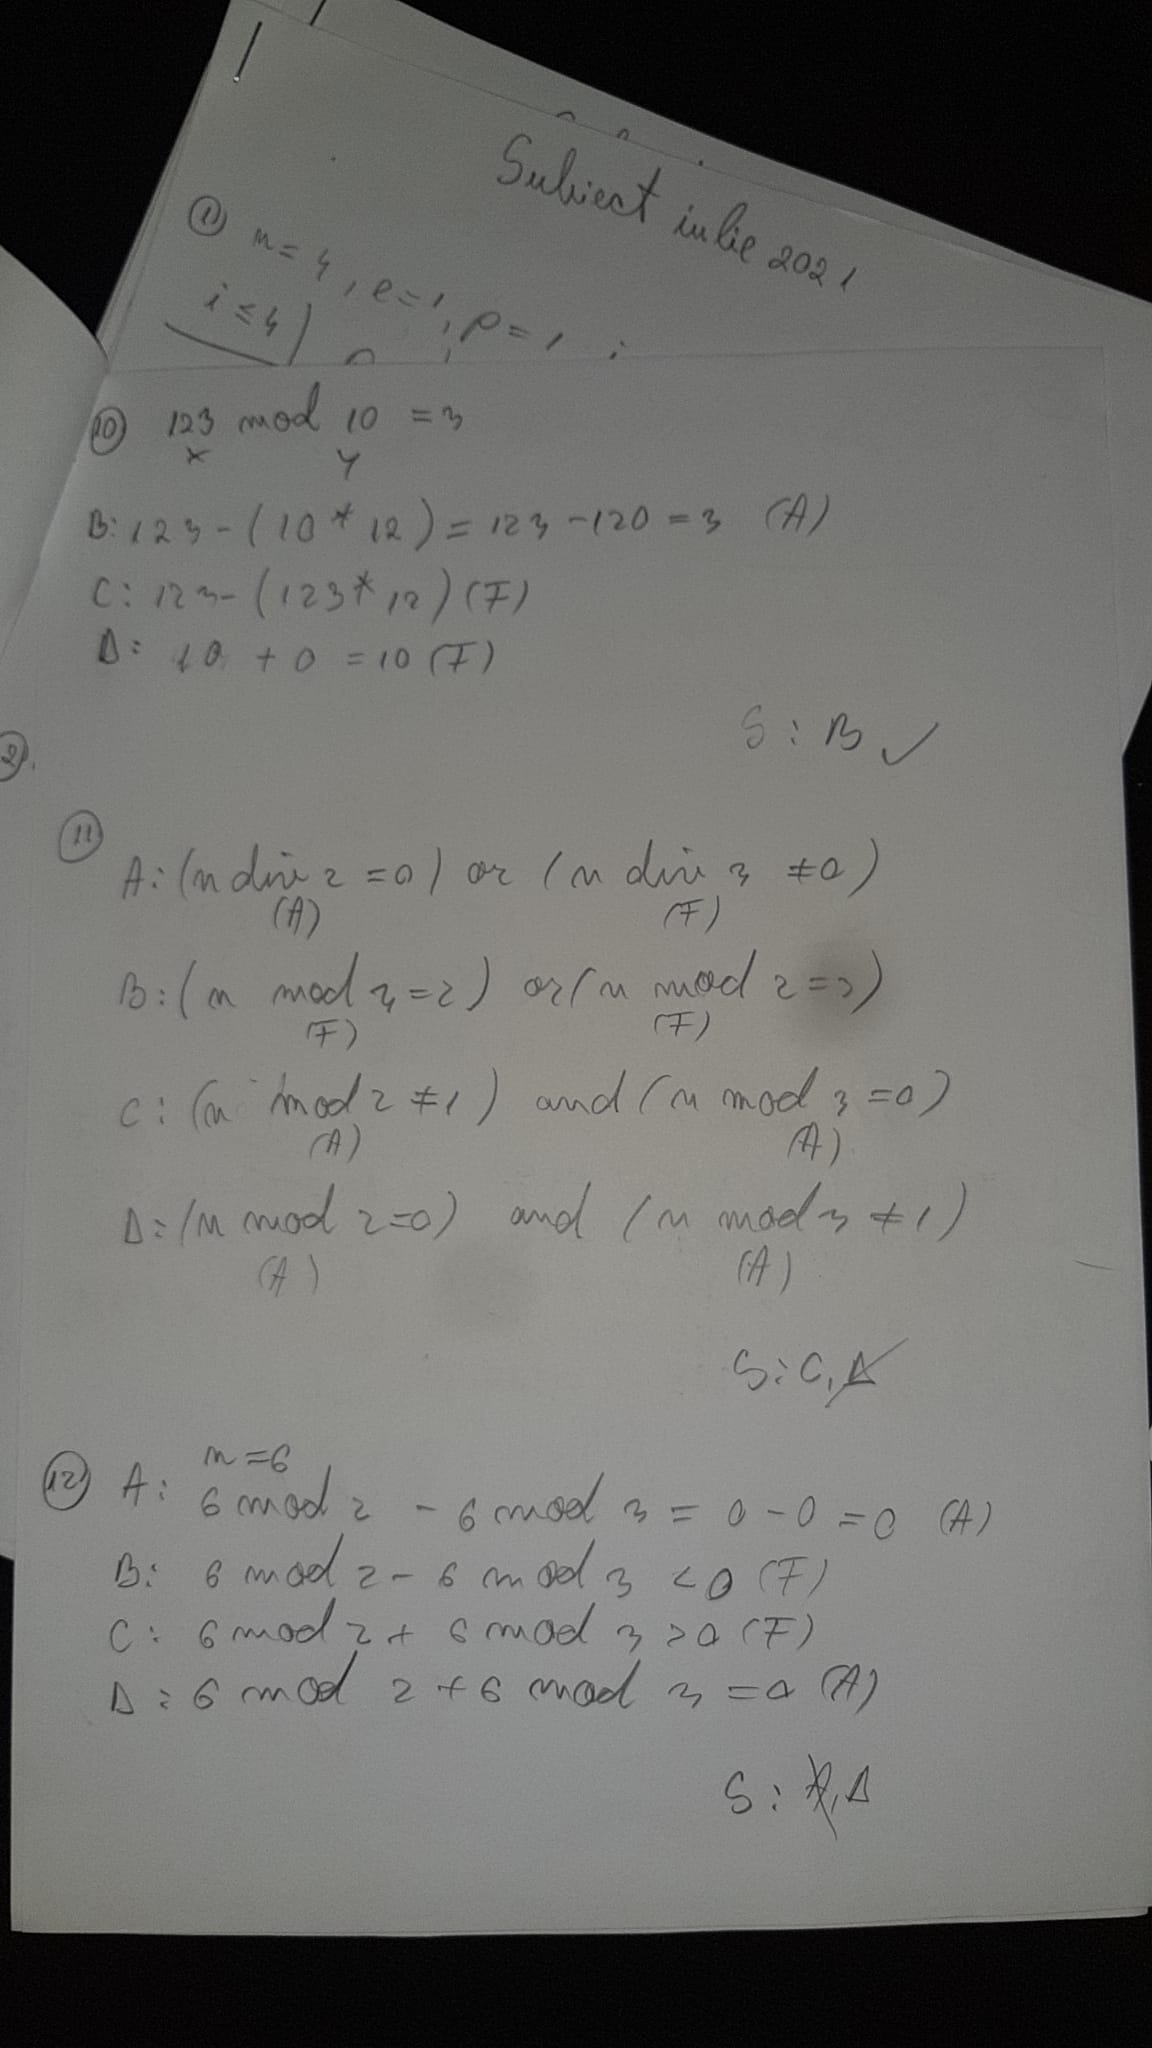 Subiect iulie 2021
① n=4, e=1, p=1,
i≤4
⑩ 123 mod 10 = 3
x y
B: 123-(10*12)= 123-120=3 (A)
C: 123-(123*12) (F)
D: 10 + 0 = 10 (F)
S: B ✓
⑪
A: (n div 2 =0) or (n div 3 ≠0)
(A) (F)
B: (n mod 3=2) or (n mod 2=3)
(F) (F)
C: (n mod 2 ≠1) and (n mod 3 =0)
(A) (A)
D: (n mod 2=0) and (n mod 3 ≠1)
(A) (A)
S: C, D
⑫ A: n=6
6 mod 2 - 6 mod 3 = 0-0=0 (A)
B: 6 mod 2- 6 mod 3 <0 (F)
C: 6 mod 2+ 6 mod 3 >0 (F)
D: 6 mod 2+6 mod 3 =0 (A)
S: A, D